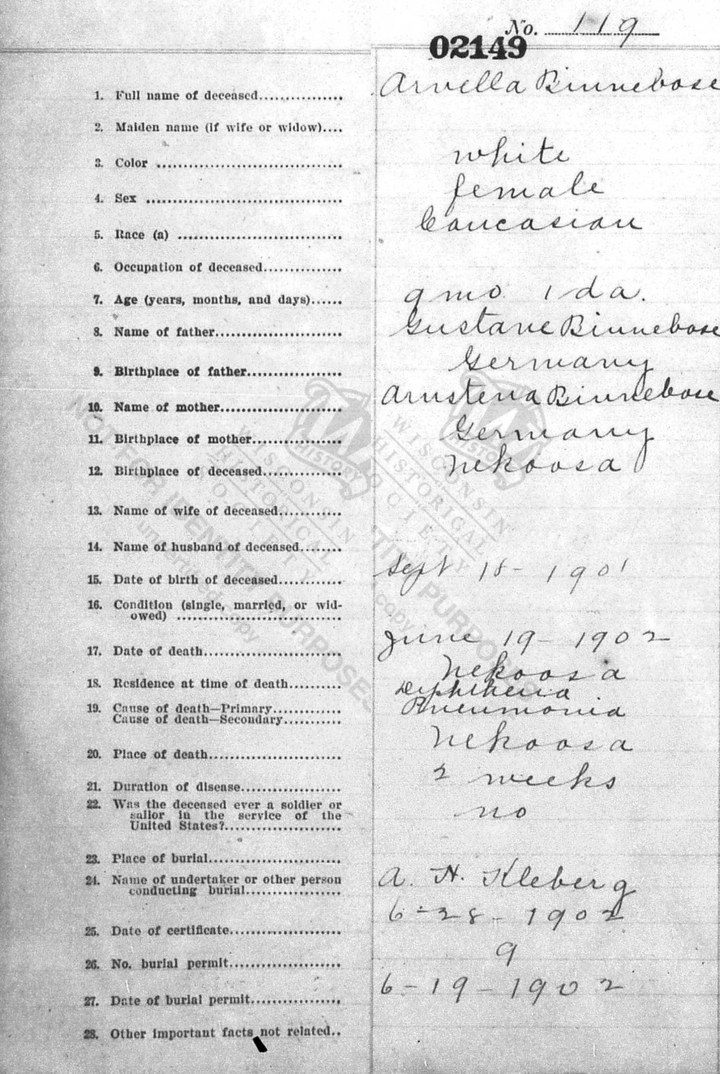 No. 119
02149
1. Full name of deceased............... Arvella Binnebose
2. Maiden name (if wife or widow)....
3. Color ................................... white
4. Sex .................................... female
5. Race (a) .............................. Caucasian
6. Occupation of deceased...............
7. Age (years, months, and days)...... 9 mo 1 da.
8. Name of father........................ Gustave Binnebose
9. Birthplace of father.................. Germany
10. Name of mother....................... Arnstena Binnebose
11. Birthplace of mother................. Germany
12. Birthplace of deceased............... Nekoosa
13. Name of wife of deceased............
14. Name of husband of deceased........
15. Date of birth of deceased............ Sept 18 - 1901
16. Condition (single, married, or wid-
owed) ..............................
17. Date of death......................... June 19 - 1902
18. Residence at time of death.......... Nekoosa
19. Cause of death—Primary............. Diphtheria
Cause of death—Secondary........... Pneumonia
20. Place of death........................ Nekoosa
21. Duration of disease................... 2 weeks
22. Was the deceased ever a soldier or
sailor in the service of the
United States?...................... no
23. Place of burial........................
24. Name of undertaker or other person
conducting burial.................. A. H. Kleberg
25. Date of certificate.................... 6-28-1902
26. No. burial permit.................... 9
27. Date of burial permit................ 6-19-1902
28. Other important facts not related..
WISCONSIN
HISTORICAL
SOCIETY
WISCONSIN
HISTORICAL
SOCIETY
NOT FOR IDENTITY PURPOSES
uncertified copy